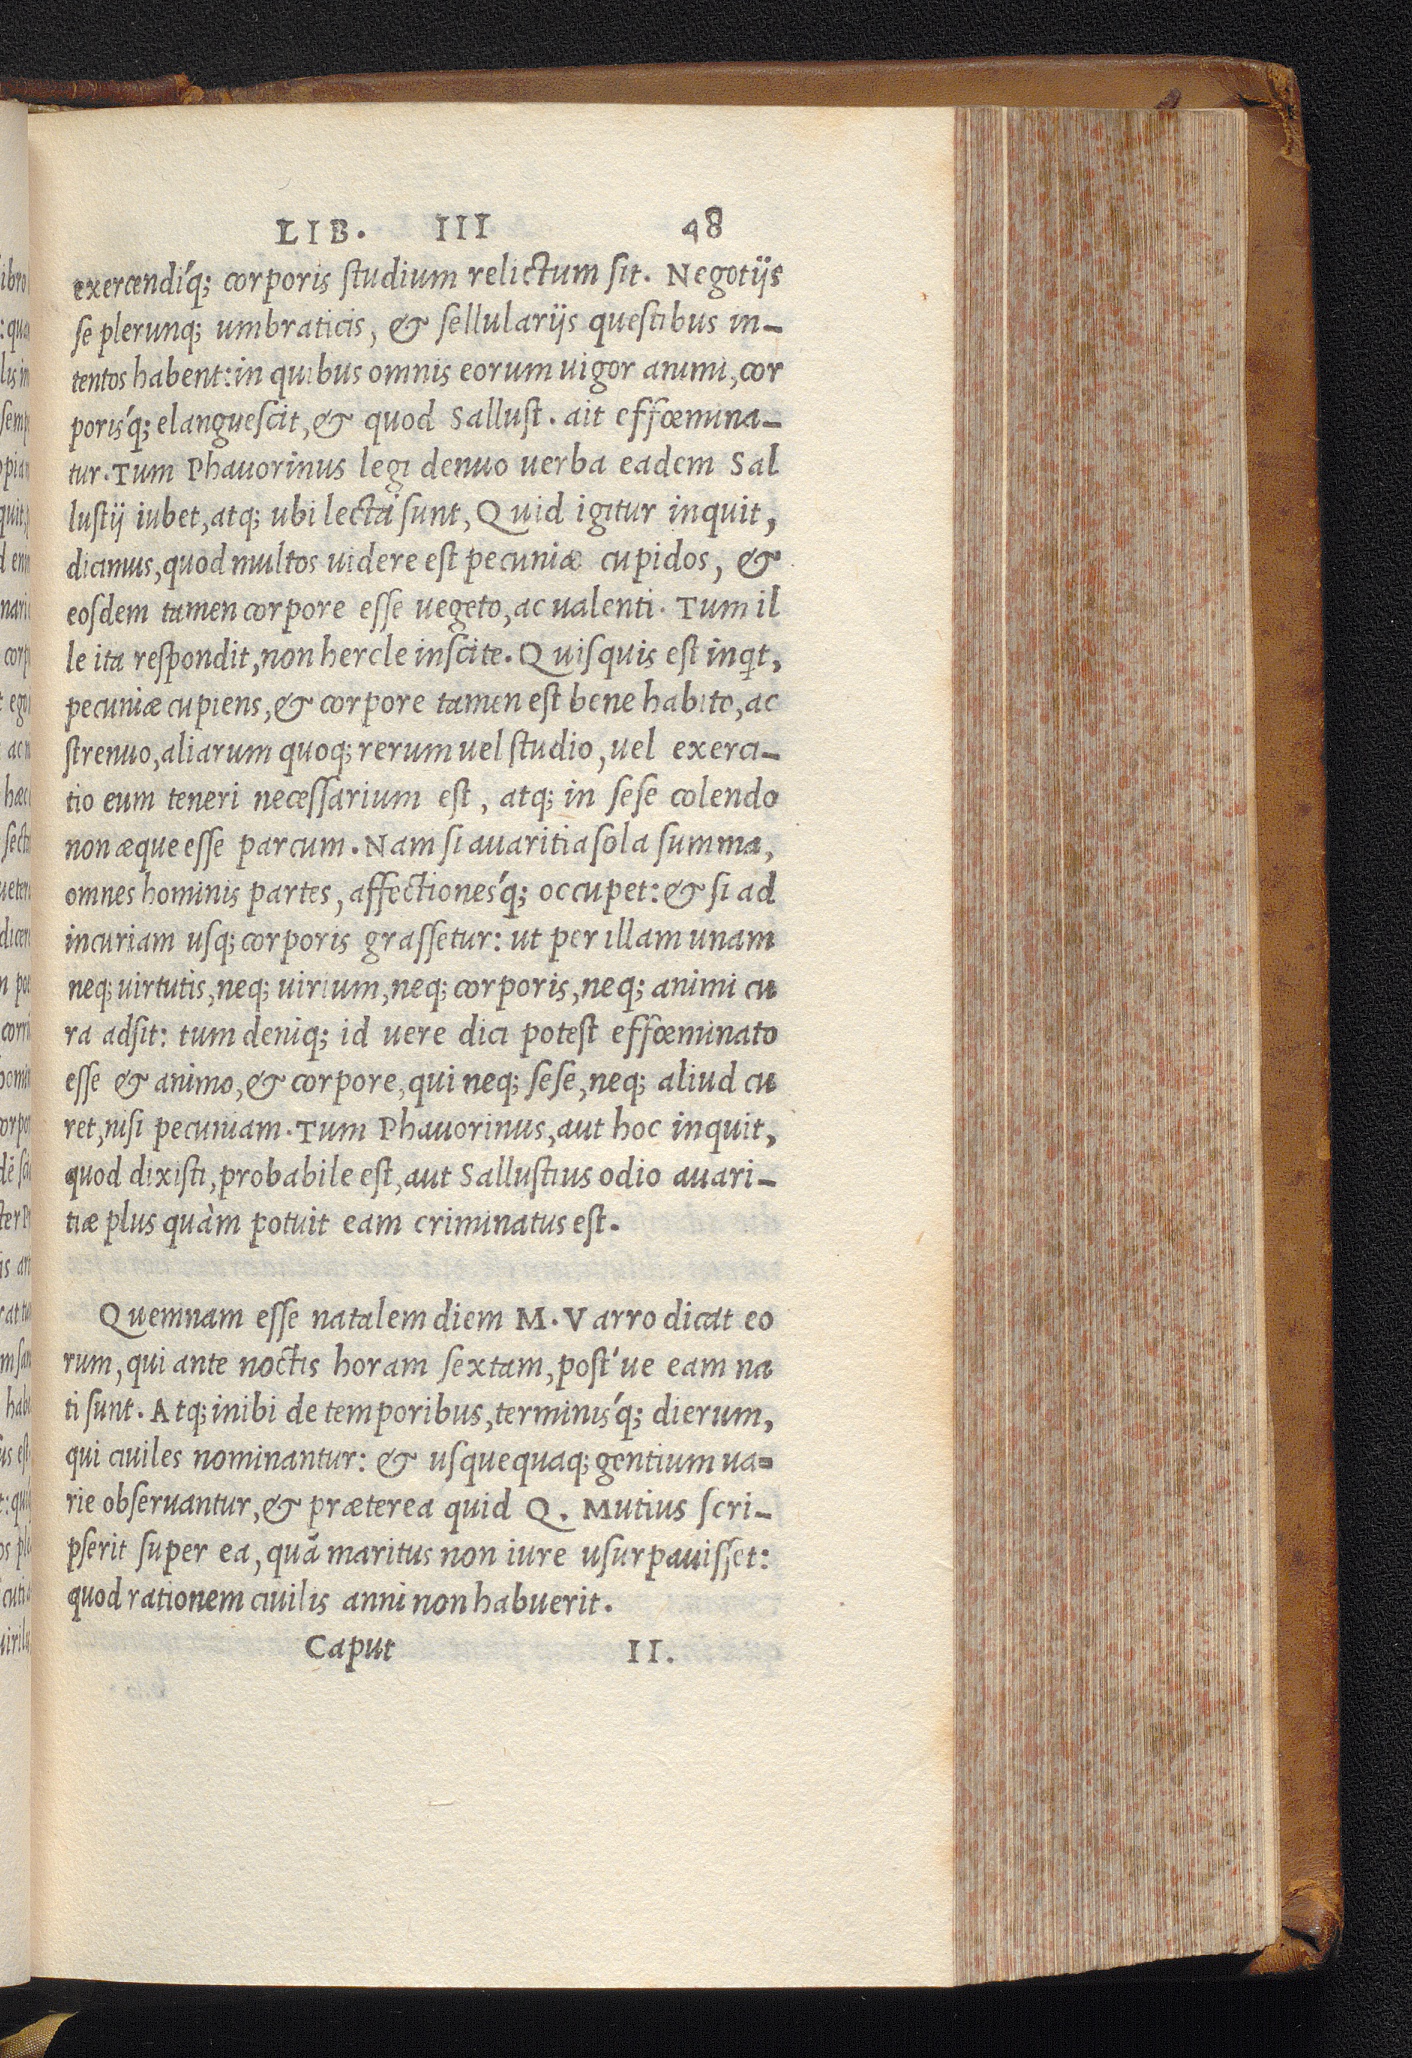 LIB. III 48
exercendíq; corporis ſtudium relictum ſit. Negotijs
ſe plerunq; umbraticis, & ſellularijs queſtibus in-
tentos habent: in quibus omnis eorum uigor animi, cor
poriśq; elangueſcit, & quod Salluſt. ait effœmina-
tur. Tum Phauorinus legi denuo uerba eadem Sal
luſtij iubet, atq; ubi lecta sunt, Quid igitur inquit,
dicimus, quod multos uidere eſt pecuniæ cupidos, &
eoſdem tamen corpore eſſe uegeto, ac ualenti. Tum il
le ita reſpondit, non hercle inſcite. Quiſquis eſt inqt,
pecuniæ cupiens, & corpore tamen eſt bene habito, ac
ſtrenuo, aliarum quoq; rerum uel ſtudio, uel exerci-
tio eum teneri neceſſarium eſt, atq; in ſeſe colendo
non æque eſſe parcum. Nam ſi auaritia ſola ſumma,
omnes hominis partes, affectioneśq; occupet: & ſi ad
incuriam uſq; corporis graſſetur: ut per illam unam
neq; uirtutis, neq; uirium, neq; corporis, neq; animi cu
ra adſit: tum deniq; id uere dici poteſt effœminato
eſſe & animo, & corpore, qui neq; ſeſe, neq; aliud cu
ret, niſi pecuniam. Tum Phauorinus, aut hoc inquit,
quod dixiſti, probabile eſt, aut Salluſtius odio auari-
tiæ plus quàm potuit eam criminatus eſt.
Quemnam eſſe natalem diem M. Varro dicat eo
rum, qui ante noctis horam ſextam, poſt'ue eam na
ti ſunt. Atq; inibi de temporibus, terminiśq; dierum,
qui ciuiles nominantur: & uſquequaq; gentium ua-
rie obſeruantur, & præterea quid Q. Mutius ſcri-
pſerit ſuper ea, quā maritus non iure uſurpauiſſet:
quod rationem ciuilis anni non habuerit.
Caput II.